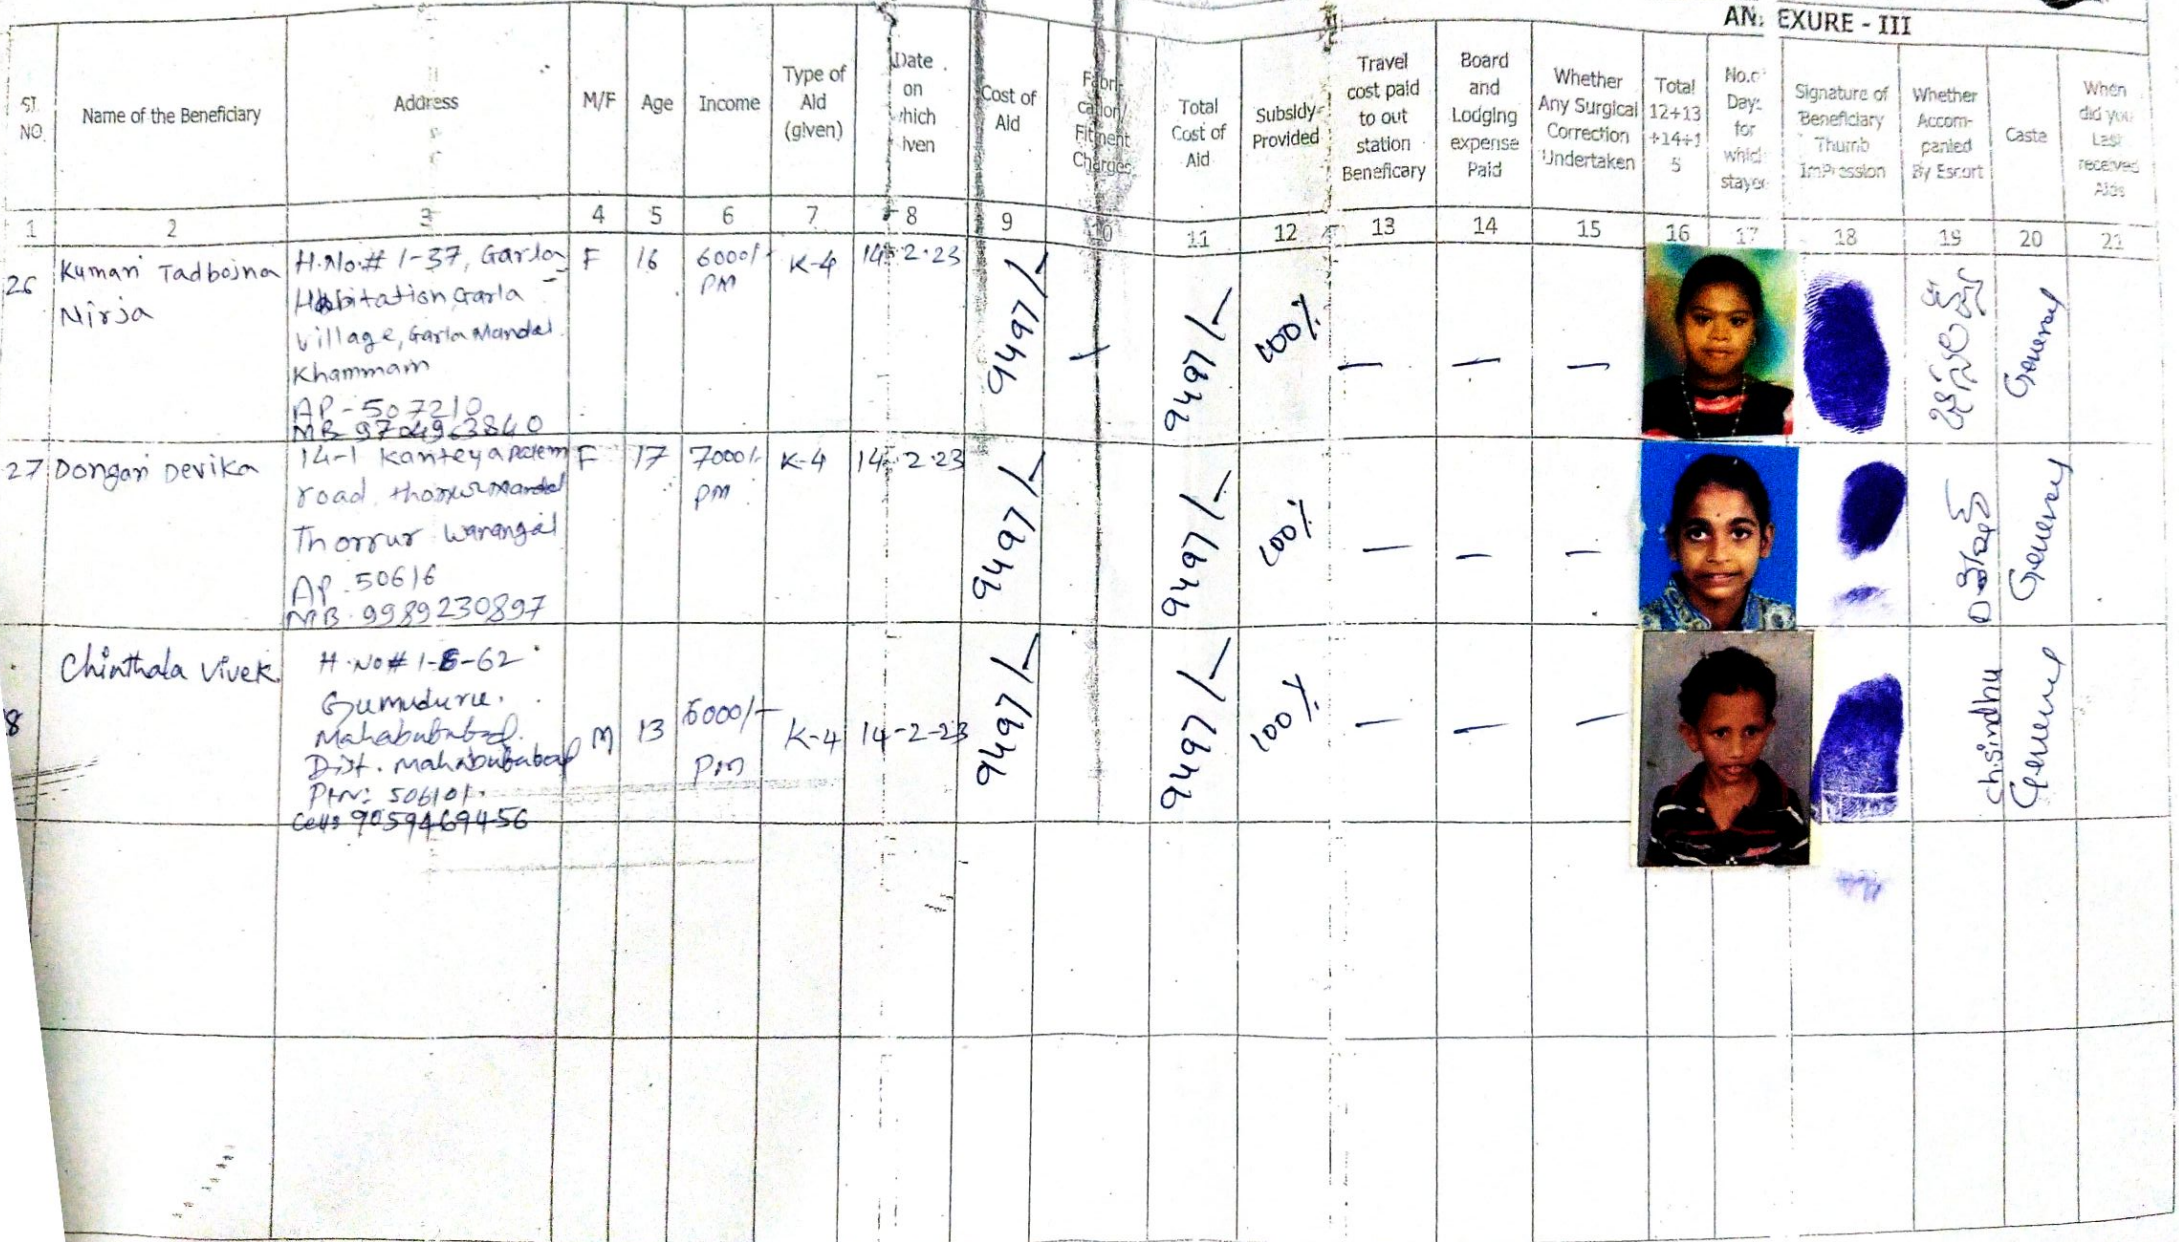 ANNEXURE - III
Sl. NO.
Name of the Beneficiary
Address
M/F
Age
Income
Type of
Aid
(given)
Date
on
which
iven
Cost of
Aid
Fabri-
cation/
Fitment
Charges
Total
Cost of
Aid
Subsidy
Provided
Travel
cost paid
to out
station
Beneficary
Board
and
Lodging
expense
Paid
Whether
Any Surgical
Correction
Undertaken
Total
12+13
+14+1
5
No.of
Days
for
which
stayed
Signature of
Beneficiary
Thumb
Impression
Whether
Accom-
panied
By Escort
Caste
When
did you
Last
received
Aids
1 2 3 4 5 6 7 8 9 10 11 12 13 14 15 16 17 18 19 20 21
26
Kumari Tadbojna
Nirja
H.No.# 1-37, Garla
Habitation, Garla
Village, Garla Mandal
Khammam
AP - 507210
MB 9704963840
F
16
6000/-
PM
K-4
14-2-23
9497/-
9497/-
100%
General
27
Dongari Devika
14-1 Kanteyapalem
road, thorrur mandal
Thorrur Warangal
AP - 50616
MB - 9989230897
F
17
7000/-
PM
K-4
14-2-23
9497/-
9497/-
100%
General
8
Chinthala Vivek
H.No# 1-6-62
Gumuduru.
Mahabubabad.
Dist. Mahabubabad
PIN: 506101.
Cell: 9059469456
M
13
6000/-
PM
K-4
14-2-23
9497/-
9497/-
100%
ch.sindhu
General